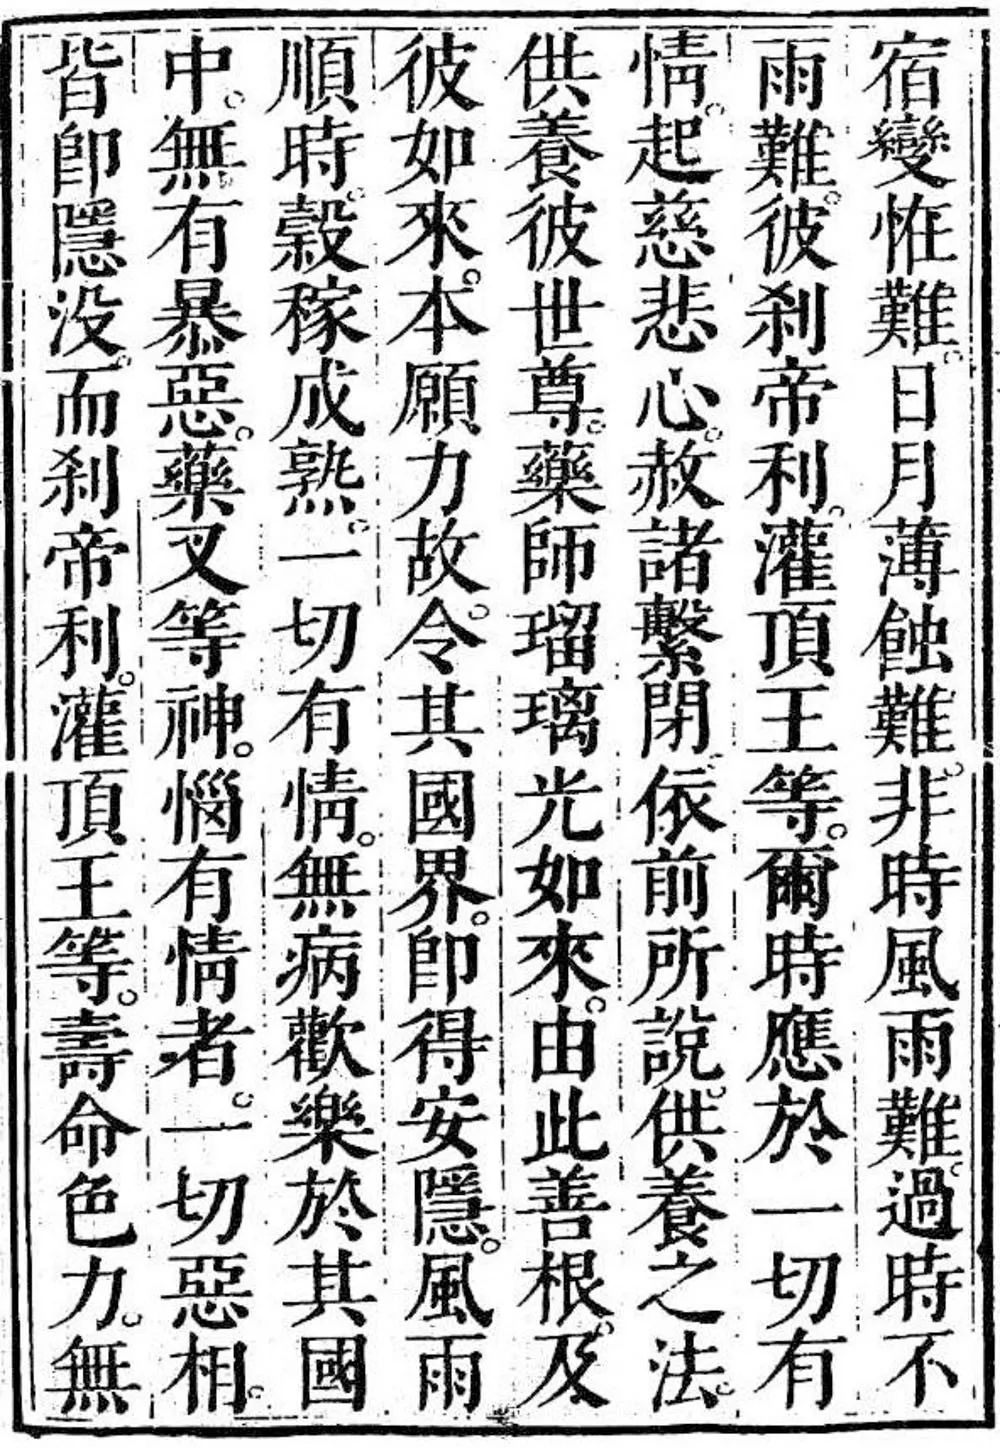 宿變恠難。日月薄蝕難。非時風雨難。過時不
雨難。彼刹帝利。灌頂王等。爾時應於一切有
情。起慈悲心。赦諸繫閉。依前所說。供養之法。
供養彼世尊。藥師瑠璃光如來。由此善根。及
彼如來。本願力故。令其國界。卽得安隱。風雨
順時。穀稼成熟。一切有情。無病歡樂於其國
中。無有暴惡。藥叉等神。惱有情者。一切惡相。
皆卽隱没。而刹帝利。灌頂王等。壽命色力。無